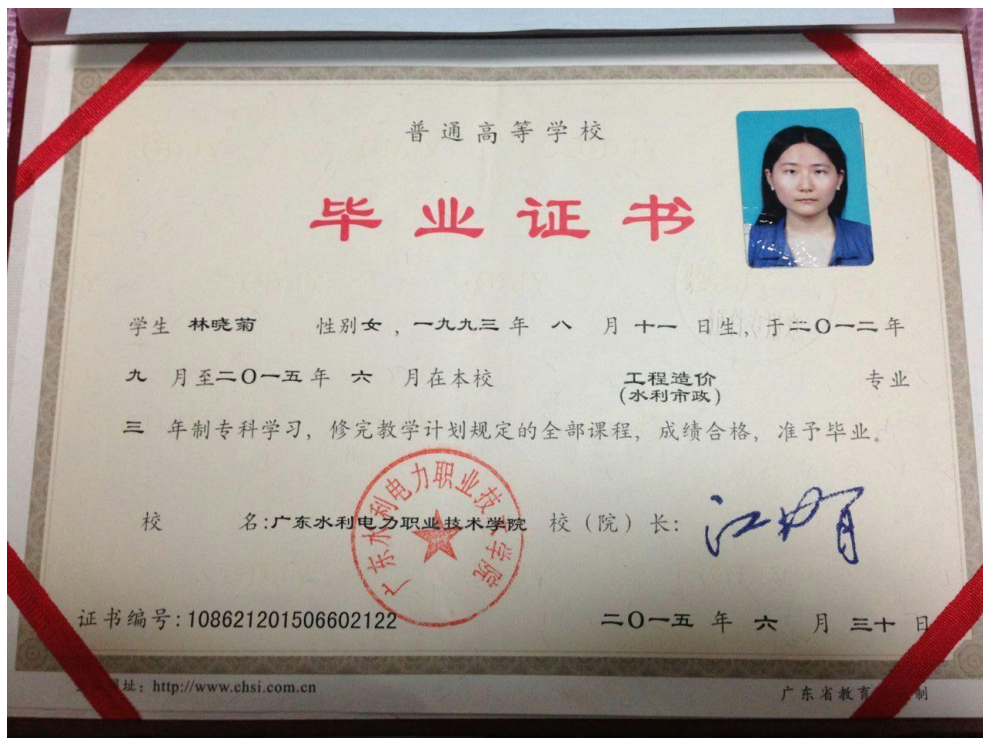 普通高等学校
毕业证书
学生 林晓菊 性别女，一九九三年 八 月十一日生，于二〇一二年
九 月至二〇一五年 六 月在本校 工程造价 专业
(水利市政)
三 年制专科学习，修完教学计划规定的全部课程，成绩合格，准予毕业。
校 名:广东水利电力职业技术学院 校（院）长:
广东水利电力职业技术学院
证书编号:108621201506602122 二〇一五 年 六 月 三十 日
网址：http://www.chsi.com.cn 广东省教育 制